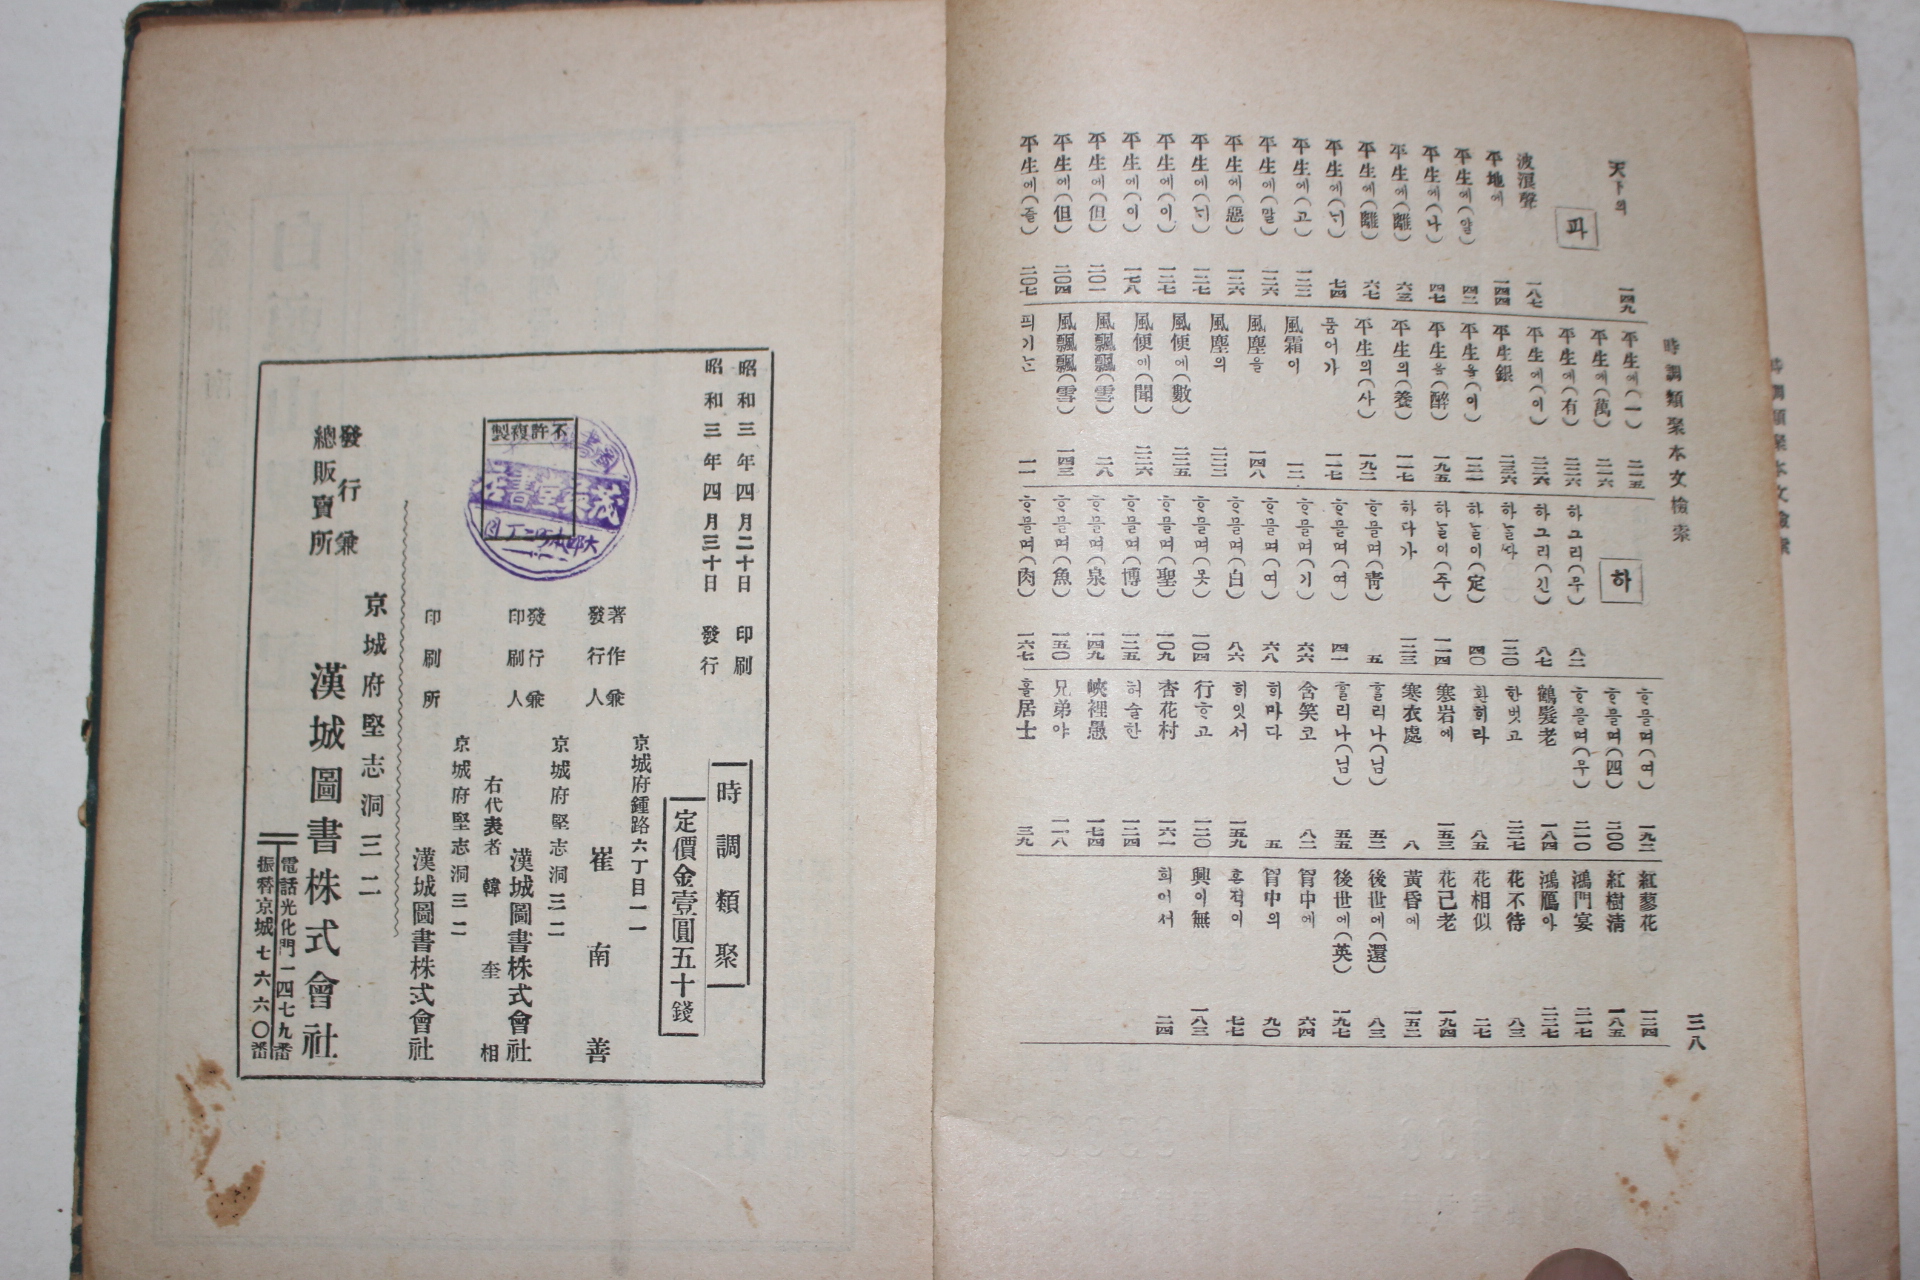 時調類聚本文檢索
三八
天下의 一四九
파
波浪聲 一八七
平地에 一四四
平生에(알) 四二
平生에(나) 四七
平生에(離) 六三
平生에(離) 六七
平生에(늬) 七四
平生에(고) 一二二
平生에(말) 一二六
平生에(惡) 一二六
平生에(늬) 一二七
平生에(이) 一二七
平生에(이) 一七八
平生에(但) 二〇一
平生에(但) 二〇四
平生에(즐) 二〇七
平生에(一) 二一五
平生에(萬) 二一六
平生에(有) 二二六
平生에(이) 二二六
平生銀 二三六
平生을(이) 一二一
平生을(醉) 一九五
平生의(養) 一一七
平生의(사) 一九二
품어가 一一七
風霜이 一二
風塵을 一四八
風塵의 二三三
風便에(數) 二三五
風便에(聞) 二二六
風飄飄(雪) 二八
風飄飄(雪) 一四三
픠기는 一一
하
하그리(우) 八二
하그리(긴) 八七
하늘싸 一二〇
하늘이(定) 四〇
하늘이(주) 一一四
하다가 一二三
ᄒᆞ믈며(靑) 五
ᄒᆞ믈며(여) 四一
ᄒᆞ믈며(기) 六六
ᄒᆞ믈며(여) 六八
ᄒᆞ믈며(白) 八六
ᄒᆞ믈며(못) 一〇四
ᄒᆞ믈며(聖) 一〇九
ᄒᆞ믈며(博) 一二五
ᄒᆞ믈며(泉) 一四九
ᄒᆞ믈며(魚) 一五〇
ᄒᆞ믈며(肉) 一六七
ᄒᆞ믈며(여) 一九二
ᄒᆞ믈며(四) 二〇〇
ᄒᆞ믈며(무) 二一〇
鶴髮老 一八四
한벗고 二二七
환회라 八五
寒岩에 一五三
寒衣處 八
흘리나(님) 五二
흘리나(님) 五五
含笑코 八二
희마다 五
희잇서 一五九
行ᄒᆞ고 一二〇
杏花村 一六一
허슬한 一二四
峽裡愚 一七四
兄弟야 一一八
홀居士 三九
紅蓼花 一二四
紅樹淸 一八五
鴻門宴 二一七
鴻鴈아 二二七
花不待 八三
花相似 二七
花己老 一九四
黃昏에 一五二
後世에(還) 八三
後世에(英) 一九七
胷中에 六四
胷中의 九〇
흉적이 七七
興이無 一八三
희어서 二四
昭和三年四月二十日 印刷
昭和三年四月三十日 發行
時調類聚
定價金壹圓五十錢
不許複製
京城府鍾路六丁目一一
著作兼發行人 崔南善
京城府堅志洞三二
發行兼印刷人 漢城圖書株式會社
右代表者 韓奎相
京城府堅志洞三二
印刷所 漢城圖書株式會社
京城府堅志洞三二
發行兼總販賣所 漢城圖書株式會社
電話光化門一四七九番
振替京城七六六〇番